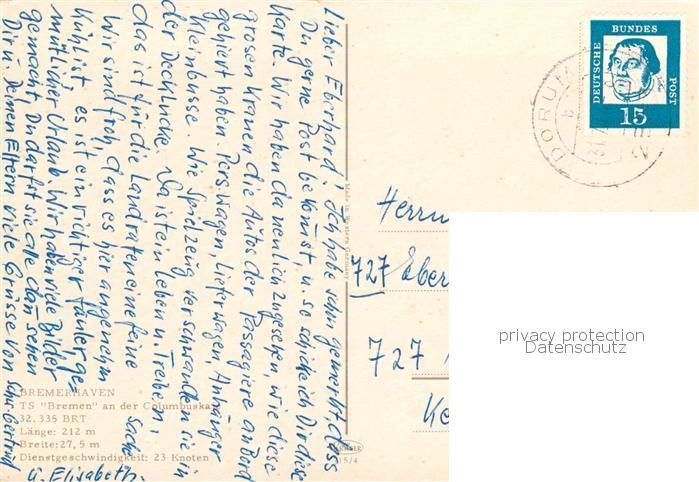 Lieber Eberhard! Ich habe sehr gemerkt, dass
Du gerne Post bekommst, u. so schicke ich Dir diese
Karte. Wir haben da neulich zugesehen, wie diese
grossen Kranen die Autos der Passagiere an Bord
gehievt haben. Pers. wagen, Lieferwagen, Anhänger
Kleinbusse. Wie Spielzeug verschwanden sie in
der Decklucke. Das ist ein Leben u. Treiben,
das ist für die Landratten eine feine Sache
Wir sind froh, dass es hier angenehm
kühl ist. es ist ein richtiger fauler, ge-
mütlicher Urlaub. Wir haben viele Bilder
gemacht. Du darfst sie alle dann sehen
Dir u. Deinen Eltern viele Grüsse von Schw. Gertrud
u. Elisabeth.
BREMERHAVEN
TS "Bremen" an der Columbuskaje
32.335 BRT
Länge: 212 m
Breite: 27,5 m
Dienstgeschwindigkeit: 23 Knoten
Made in Western Germany
15/4
DEUTSCHE
BUNDES
POST
15
DORUM
Herrn
727 Eber
727
privacy protection
Datenschutz